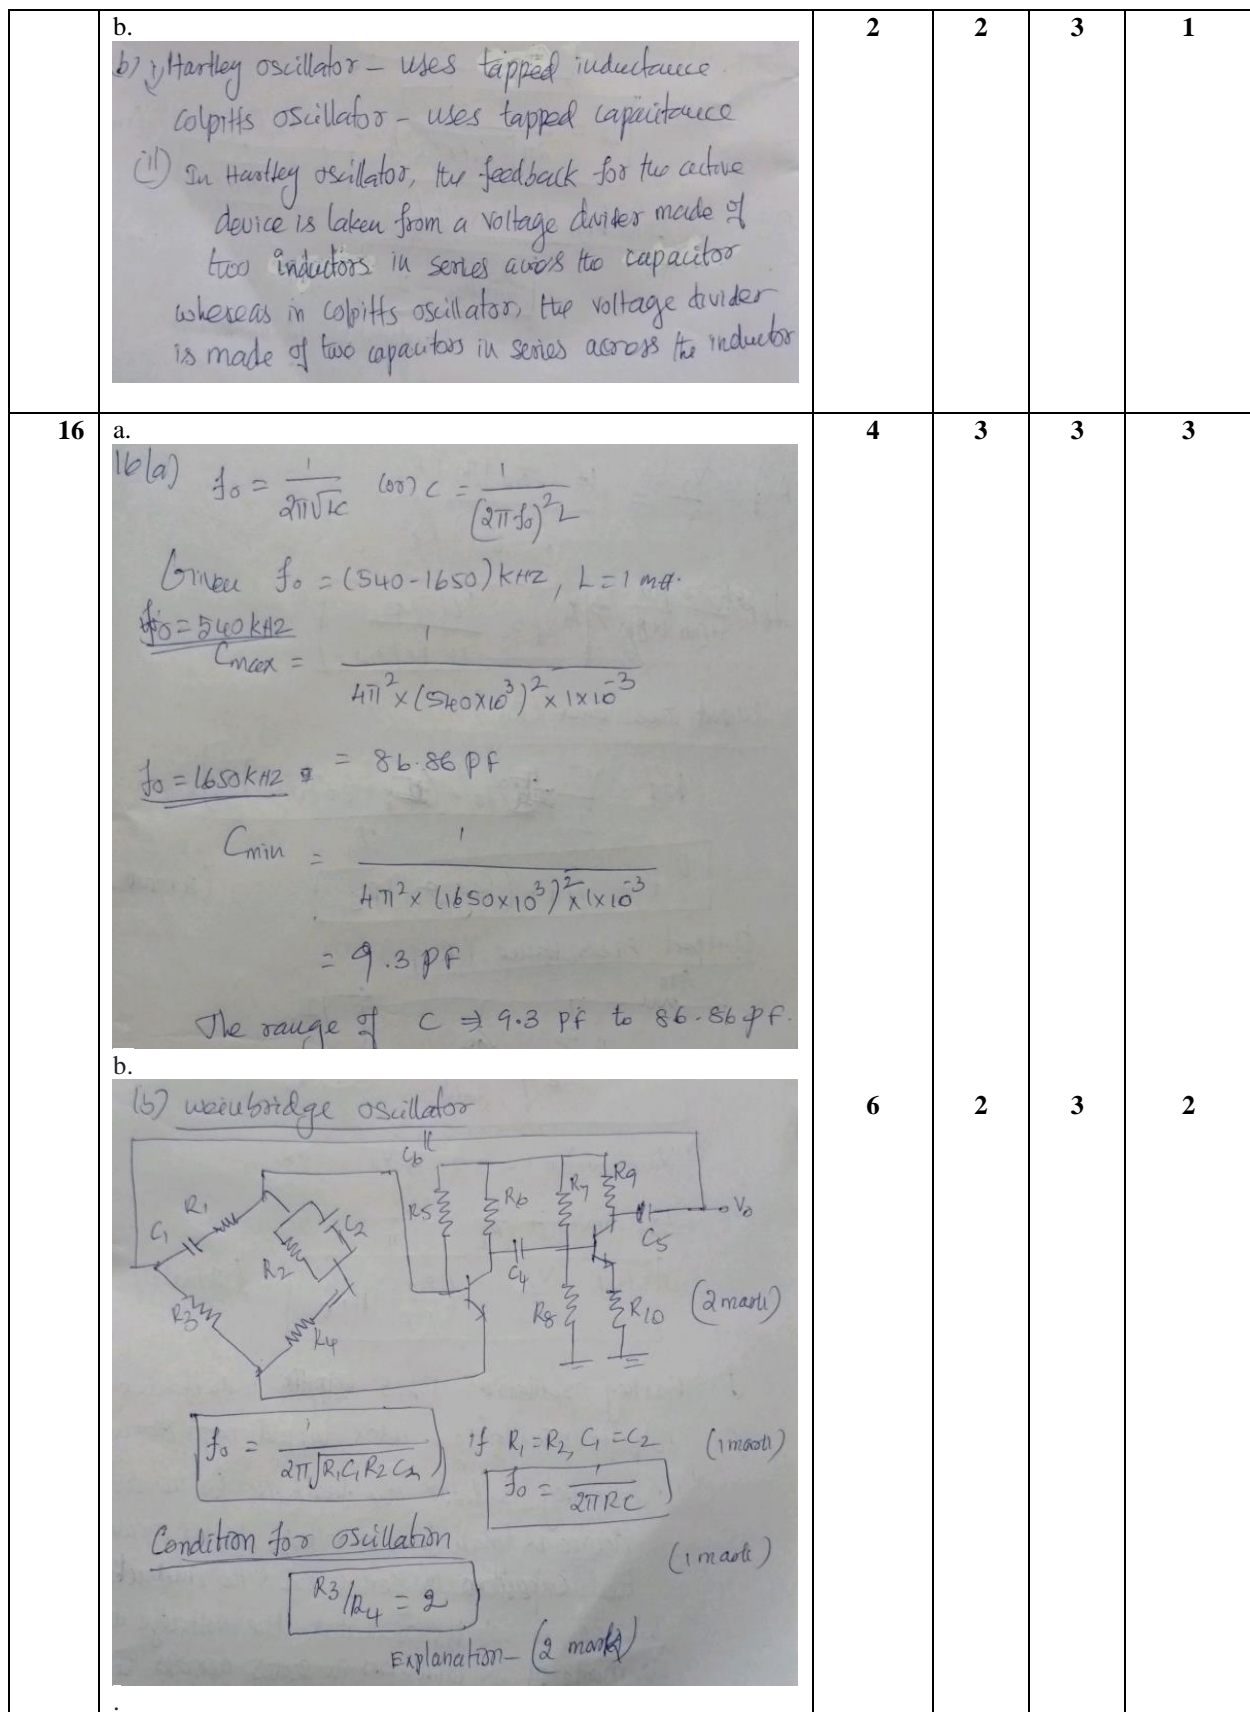 b. 2 2 3 1
b) i) Hartley oscillator – uses tapped inductance
colpitts oscillator – uses tapped capacitance
(ii) In Hartley oscillator, the feedback for the active
device is taken from a voltage divider made of
two inductors in series across the capacitor
whereas in colpitts oscillator, the voltage divider
is made of two capacitors in series across the inductor
16 a. 4 3 3 3
16(a) f₀ = 1/2π√LC (or) C = 1/(2πf₀)²L
Given f₀ = (540-1650) kHz, L = 1 mH.
f₀ = 540 kHz
Cmax = 1/4π² × (540×10³)² × 1×10⁻³
= 86.86 pf
f₀ = 1650 kHz
Cmin = 1/4π² × (1650×10³)² × 1×10⁻³
= 9.3 pf
The range of C ⇒ 9.3 pf to 86.86 pf.
b.
(b) weinbridge oscillator 6 2 3 2
C6
R1 C1 C2 R2 R3 R4
R5 R6 R7 R9
C4 C5 V₀
R8 R10 (2 mark)
f₀ = 1/2π√R₁C₁R₂C₂ if R₁=R₂, C₁=C₂ (1 mark)
f₀ = 1/2πRC
Condition for oscillation (1 mark)
R3/R4 = 2
Explanation – (2 marks)
.